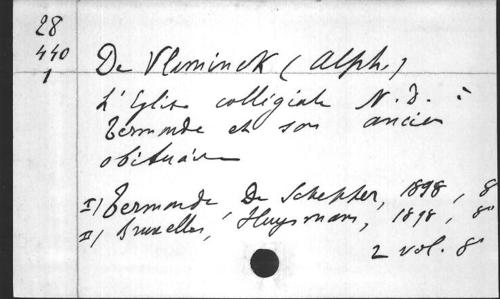 28
440
1
De Vlaminck (Alph.)
L'Eglise collégiale N. D. à
Termonde et son ancien
obituaire
I) Termonde, De Schepper, 1898, 8°
II) Bruxelles, Huysmans, 1898, 8°
2 vol. 8°